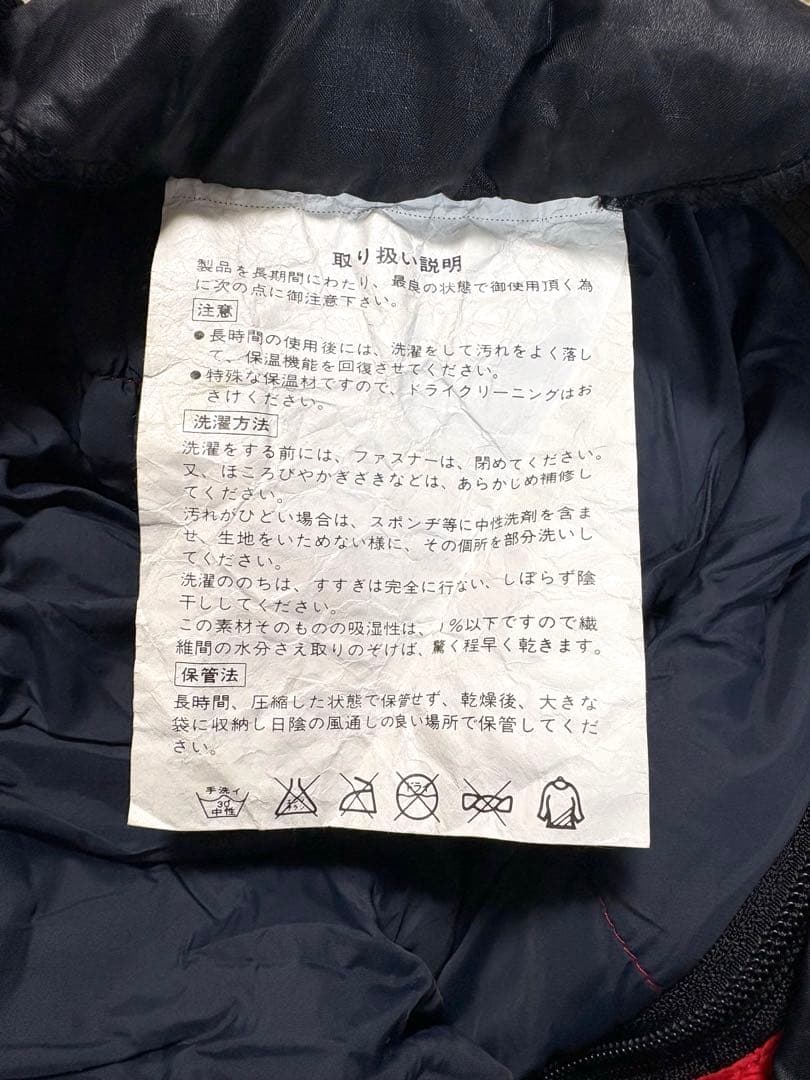 取り扱い説明
製品を長期間にわたり、最良の状態で御使用頂く為
に次の点に御注意下さい。
注意
●長時間の使用後には、洗濯をして汚れをよく落し
て、保温機能を回復させてください。
●特殊な保温材ですので、ドライクリーニングはお
さけください。
洗濯方法
洗濯をする前には、ファスナーは、閉めてください。
又、ほころびやかぎざきなどは、あらかじめ補修し
てください。
汚れがひどい場合は、スポンヂ等に中性洗剤を含ま
せ、生地をいためない様に、その個所を部分洗いし
てください。
洗濯ののちは、すすぎは完全に行ない、しぼらず陰
干ししてください。
この素材そのものの吸湿性は、1%以下ですので繊
維間の水分さえ取りのぞけば、驚く程早く乾きます。
保管法
長時間、圧縮した状態で保管せず、乾燥後、大きな
袋に収納し日陰の風通しの良い場所で保管してくだ
さい。
手洗イ
30
中性
エンソ
サラシ
ドライ